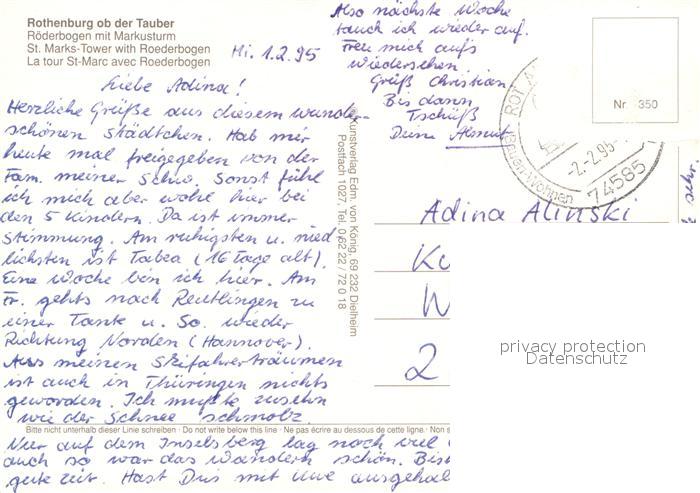 Rothenburg ob der Tauber
Röderbogen mit Markusturm
St. Marks-Tower with Roederbogen
La tour St-Marc avec Roederbogen
Mi. 1.2.95
Liebe Adina!
Herzliche Grüße aus diesem wunder-
schönen Städtchen. Hab mir
heute mal freigegeben von der
Fam. meiner Schw. Sonst fühl
ich mich aber wohl hier bei
den 5 Kindern. Da ist immer
Stimmung. Am ruhigsten u. nied
lichsten ist Tabea (16 Tage alt).
Eine Woche bin ich hier. Am
Fr. gehts nach Reutlingen zu
einer Tante u. So. wieder
Richtung Norden (Hannover).
Aus meinen Skifahrerträumen
ist auch in Thüringen nichts
geworden. Ich mußte zusehn
wie der Schnee schmolz.
Bitte nicht unterhalb dieser Linie schreiben · Do not write below this line · Ne pas écrire au dessous de cette ligne. · Non s
Nur auf dem Inselsberg lag noch viel
auch so war das Wandern schön. Bis
gute Zeit. Hast Du's mit Uwe ausgehal
Also nächste Woche
tauch ich wieder auf.
Freu mich aufs
wiedersehen
Grüß Christian
Bis dann
Tschüß
Deine Almut
Kunstverlag Edm. von König, 69 232 Dielheim
Postfach 1027, Tel. 0 62 22 / 72 0 18
Nr. 350
ROT
-2.-2.95-
74585
Adina Alinski
Ku
W
2
sehr.
privacy protection
Datenschutz